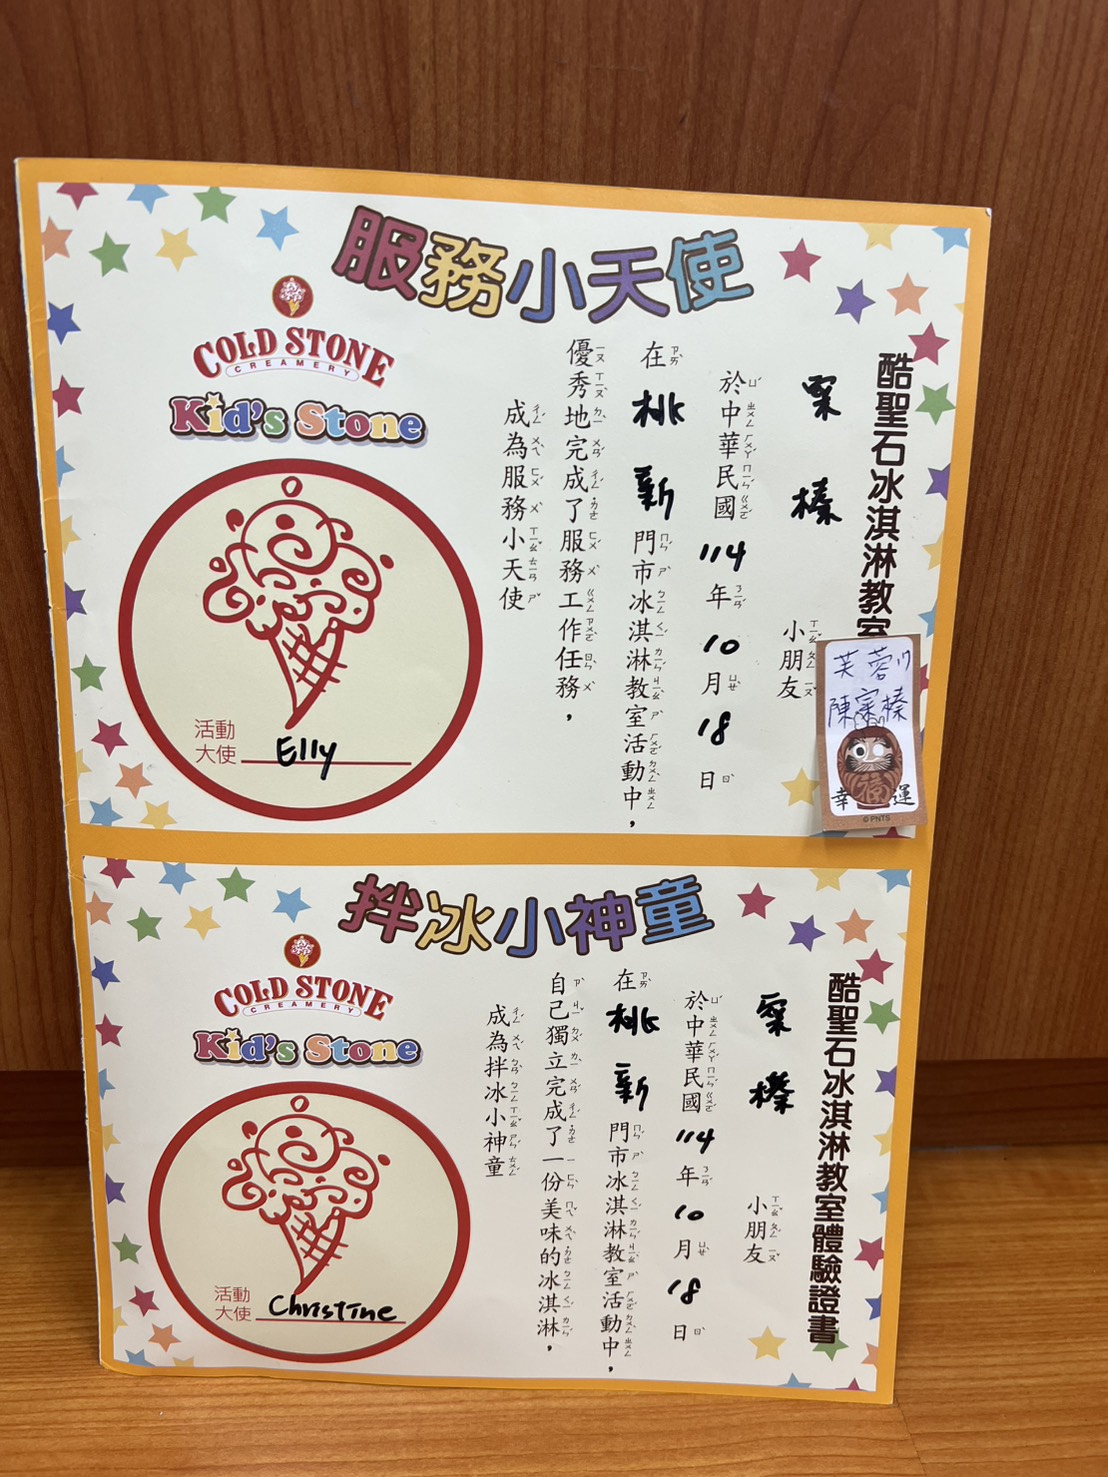 服務小天使
COLD STONE
CREAMERY
Kid's Stone
酷聖石冰淇淋教室
榛
小朋友
於中華民國114年10月18日
在桃新門市冰淇淋教室活動中，
優秀地完成了服務工作任務，
成為服務小天使
活動
大使 Elly
芙蓉
陳寀榛
福
幸 運
©PNTS
拌冰小神童
COLD STONE
CREAMERY
Kid's Stone
酷聖石冰淇淋教室體驗證書
榛
小朋友
於中華民國114年10月18日
在桃新門市冰淇淋教室活動中，
自己獨立完成了一份美味的冰淇淋，
成為拌冰小神童
活動
大使 Christine